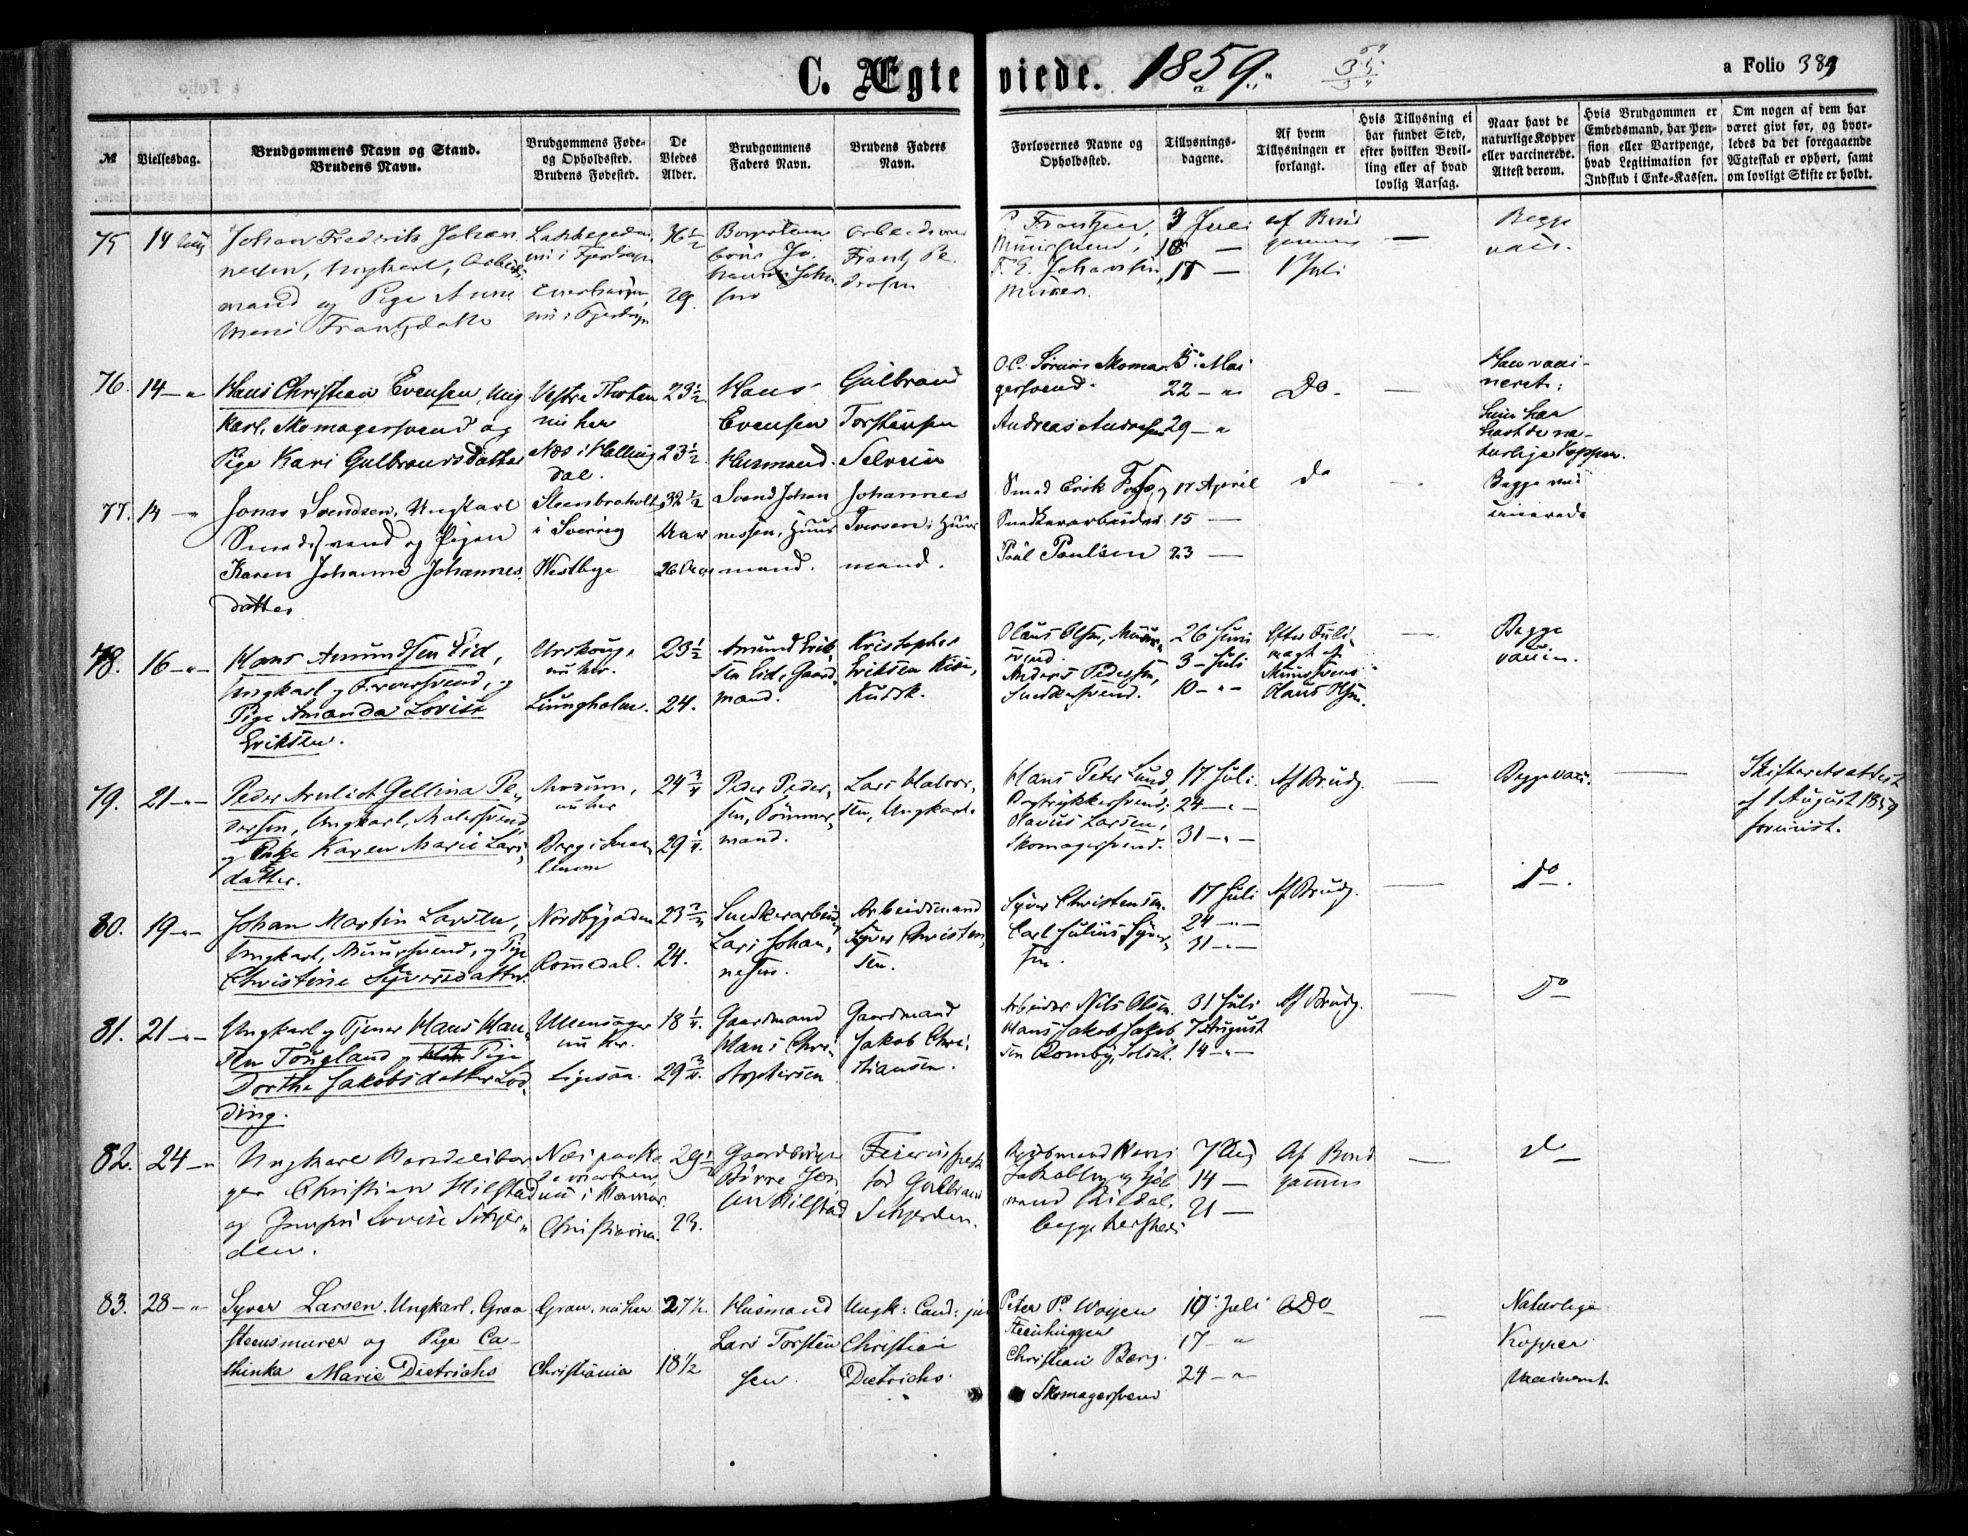 C. Ægteviede. 1859.
a Folio 389
№
Vielsesdag.
Brudgommens Navn og Stand.
Brudens Navn.
Brudgommens Føde-
og Opholdssted.
Brudens Fødested.
De
Viedes
Alder.
Brudgommens
Faders Navn.
Brudens Faders
Navn.
Forlovernes Navne og
Opholdssted.
Tillysnings-
dagene.
Af hvem
Tillysningen er
forlangt.
Hvis Tillysning ei
har fundet Sted,
efter hvilken Bevil-
ling eller af hvad
lovlig Aarsag.
Naar havt de
naturlige Kopper
eller vaccinerede.
Attest derom.
Hvis Brudgommen er
Embedsmand, har Pen-
sion eller Vartpenge,
hvad Legitimation for
Indskud i Enke-Kassen.
Om nogen af dem har
været givt før, og hvor-
ledes da det foregaaende
Ægteskab er ophørt, samt
om lovligt Skifte er holdt.
75 14 Aug
Johan Frederik Johan
nesen, Ungkarl, Arbeids
mand og Pige Anne
Marie Frantzdatter
36½
29.
Arbeidsmd
Frantz Pe-
dersen
P. Frantzen,
Muursvend,
F. E. Johansen,
Murer.
3 Juli
10 —
17 —
af Brud
gommen
1 Juli
Begge
vacc.
76. 14 — "
Hans Christian Evensen, Ung
karl, Skomagersvend og
Pige Kari Gulbrandsdatter
Vestre Thoten
nu her
Næs i Halling
dal.
23½
23½
Hans
Evensen
Husmand.
Gulbrand
Torstensen
Selvein
O. C. Sørum Skoma
gersvend.
Andreas Andresen
15 Mai
22 — "
29 — "
Do
Han vacci-
neret;
hun har
havt de na-
turlige Kopper.
77. 14 — "
Jonas Svendsen, Ungkarl
Smedsvend og Pigen
Karen Johanne Johannes
datter
Steenbroholt
i Sverrig
Westbye
32½
Aar
26 Aar
Svend Johan
nessen, Huus
mand.
Johannes
Iversen, Huus
mand.
Smed Erik
Snedkerarbeider
Paul Paulsen
17 April
15 —
23 —
do
Begge vac
cinerede
78. 16 — " —
Hans Amundsen Eid,
Ungkarl og Farversvend, og
Pige Amanda Lovise
Eriksen.
Urskoug,
nu her.
Ljungholm.
23½
24.
Amund Erik
sen Eid, Gaard
mand.
Kristopher
Eriksen
Kudsk.
Olaus Olsen, Muur
svend.
Anders Pedersen,
Snedkersvend.
26 Juni
3 — Juli
10 — " —
Efter Fuld
magt af
Muursvend
Olaus Olsen.
Begge
vaccin.
79. 21 — " —
Peder Arnlidt Gellina Pe-
dersen, Ungkarl, Malersvend
og Pige Karen Marie Lars
datter.
Modum,
nu her
Berg i Smaa-
lenene
24¾
29¼
Peder Peder-
sen, Tømmer
mand.
Lars Halvor-
sen, Ungkarl.
Hans Peter Lund,
Bogtrykkersvend,
Olavus Larsen,
Skomagersvend.
17 Juli
24 — " —
31 — " —
Af Brudg.
Begge vacc.
Skifteretsattest
af 1 August 1859
forevist.
80. 19 — " —
Johan Martin Larsen,
Ungkarl, Muursvend, og Pige
Christine Syversdatter
Nordbygaden
Romedal.
23¾
24.
Snedkerarbeid
Lars Johan-
nesen.
Arbeidsmand
Syver Christen-
sen.
Syver Christensen.
Carl Julius Syver-
sen.
17 Juli
24 — " —
31 — " —
Af Brudg.
Do.
81. 21 — " —
Ungkarl og Tjener Hans Han-
sen Tougland og Pige
Dorthe Jakobsdatter Lod-
ding.
Ullensager
nu her.
Ligesaa.
18¼
29¾
Gaardmand
Hans Chri-
stophersen
Gaardmand
Jakob Chri-
stiansen.
Arbeider Nils Olsen.
Hans Jakob Jakob
sen Romby, Soldat.
31 Juli
7 August
14 — " —
Af Brudg.
Do
82. 24 — "
Ungkarl Handelsbor
ger Christian Hilstad
og Jomfru Lovise Setyer-
den.
nu i Hamar.
Christiania.
29½
23.
Gaardbruger
Børre Jen
sen Hilstad
for Gulbrand
Setyerden.
begge hersteds
7 Aug
14 —
21 —
Af Brud
gommen
do
83. 28 — " —
Syver Larsen, Ungkarl, Graa
steensmurer og Pige Ca-
thinka Marie Dietrichs
Gran, nu her
Christiania
27½.
18½
Husmand
Lars Torsten
sen.
Ungk: Cand: jur
Christian
Dietrichs.
Peter P. Woyen
Steenhugger
Christian Berg.
Skomagersvend
10 Juli
17 — "
24 — "
Do
Naturlige
Kopper
Vaccineret.